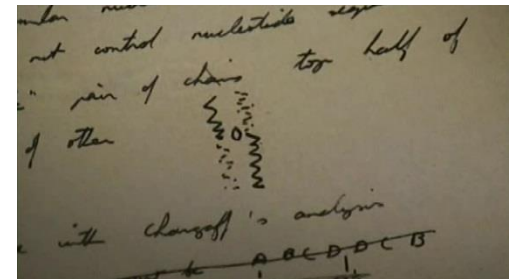 not control nucleotide
pair of chains top half of
of other
with Chargaff's analysis
A B C D D C B